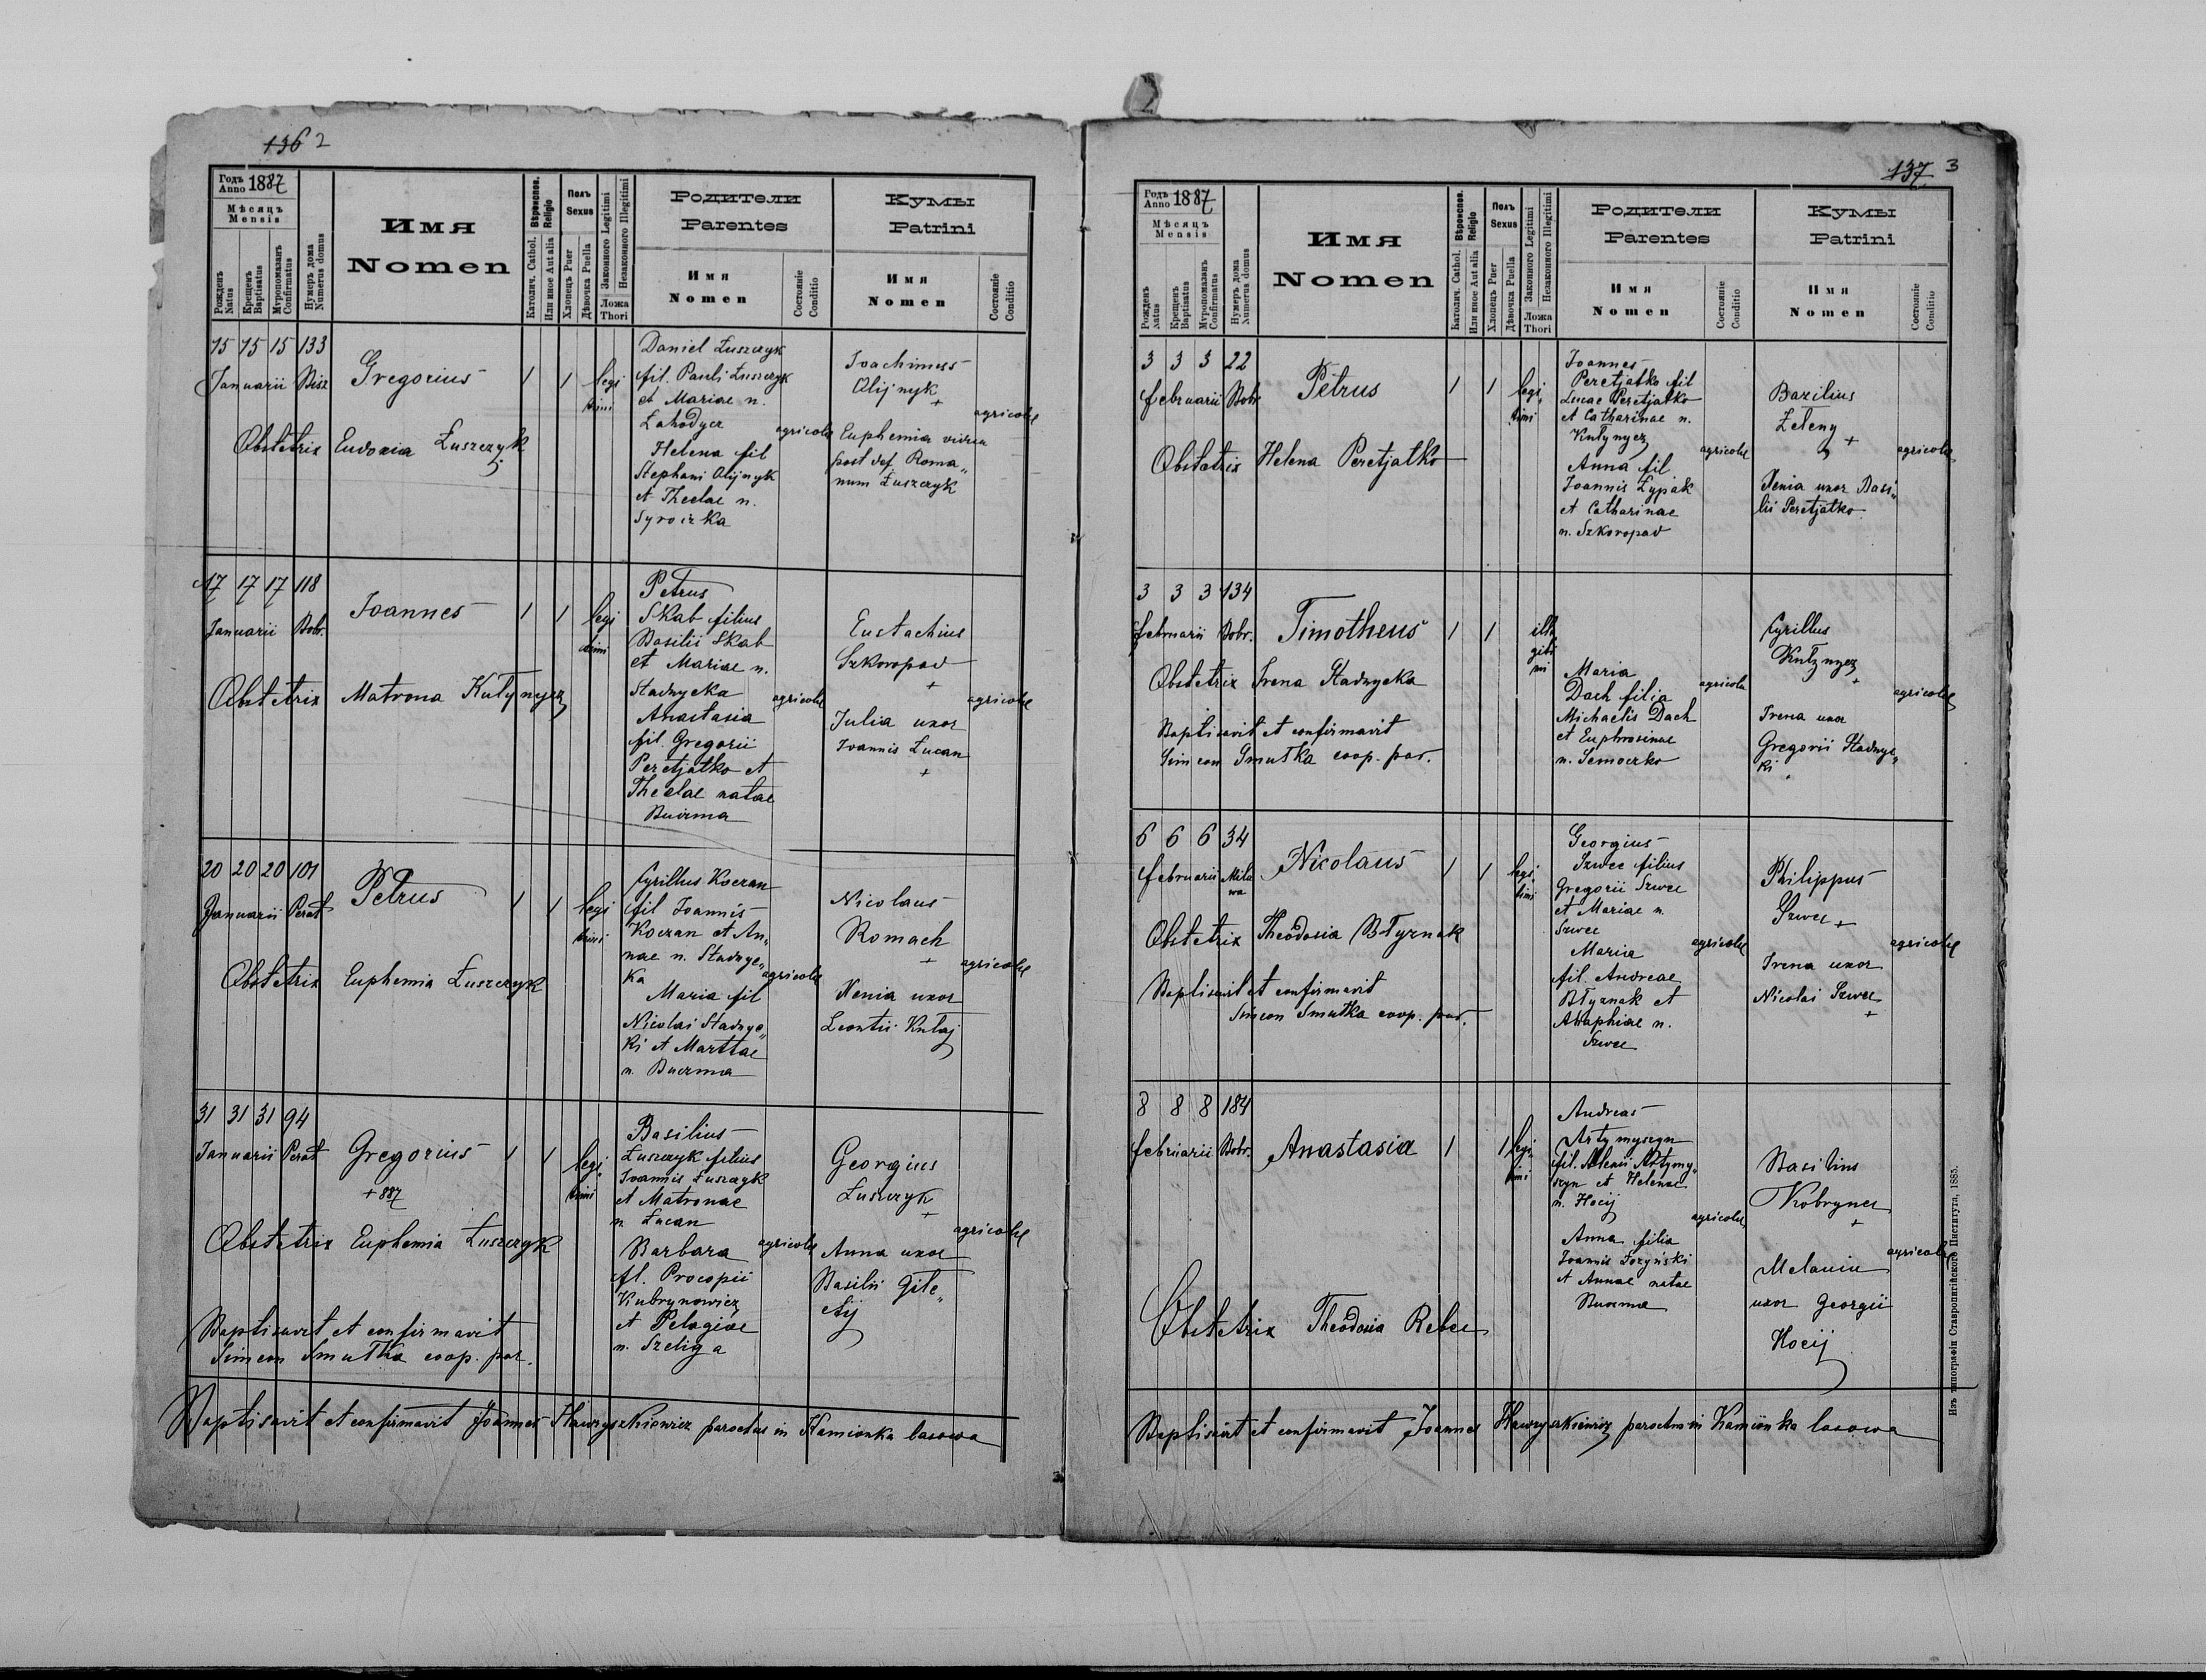 136 2
Годъ Anno 1887
Мѣсяцъ
Mensis
Рожденъ Natus
Крещенъ Baptisatus
Мѵропомазанъ Confirmatus
Нумеръ дома Numerus domus
Имя
Nomen
Вѣроиспов. Religio
Католич. Cathol.
Или иное Aut alia
Полъ Sexus
Хлопецъ Puer
Дѣвочка Puella
Законного Legitimi
Незаконного Illegitimi
Ложа Thori
Родители
Parentes
Имя
Nomen
Состояніе Conditio
Кумы
Patrini
Имя
Nomen
Состояніе Conditio
15 15 15 133
Januarii Bisz
Gregorius
1 1 legi
timi
Daniel Łuszczyk
fil. Pauli Łuszczyk
et Mariae n.
Lahodycz
Helena fil
Stephani Olijnyk
et Theclae n.
Syroizka
agricolae
Joachimus
Olijnyk
+
Euphemia vidua
post def. Roma„
num Łuszczyk
agricolae
Obstetrix Eudoxia Łuszczyk
17 17 17 118
Januarii Bobr.
Joannes
1 1 legi
timi
Petrus
Skab filius
Basilii Skab
et Mariae n.
Stadnycka
Anastasia
fil. Gregorii
Peretjatko et
Theclae natae
Buczma
agricolae
Eustachius
Szkoropad
+
Julia uxor
Joannis Łucan
+
agricolae
Obstetrix Matrona Kułynycz
20 20 20 101
Januarii Perat
Petrus
1 1 legi
timi
Cyrillus Koczan
fil Joannis
Koczan et An„
nae n. Stadnyc„
ka
Maria fil
Nicolai Stadnyc„
ki et Marttae
n. Buczma
agricolae
Nicolaus
Romach
+
Xenia uxor
Leontii Kułaj
agricolae
Obstetrix Euphemia Łuszczyk
31 31 31 94
Januarii Perat
Gregorius
+ 887
1 1 legi
timi
Basilius
Łuszczyk filius
Joannis Łuszczyk
et Matronae
n. Łucan
Barbara
fil. Procopii
Kubrynowicz
et Pelagiae
n. Szeliga
agricolae
Georgius
Łuszczyk
+
Anna uxor
Basilii Gile„
ckij
agricolae
Obstetrix Euphemia Łuszczyk
Baptisavit et confirmavit
Simeon Smutka coop. par.
Baptisavit et confirmavit Joannes Hawryszkiewicz parochus in Kamionka lasowa
137 3
Годъ Anno 1887
Мѣсяцъ
Mensis
Рожденъ Natus
Крещенъ Baptisatus
Мѵропомазанъ Confirmatus
Нумеръ дома Numerus domus
Имя
Nomen
Вѣроиспов. Religio
Католич. Cathol.
Или иное Aut alia
Полъ Sexus
Хлопецъ Puer
Дѣвочка Puella
Законного Legitimi
Незаконного Illegitimi
Ложа Thori
Родители
Parentes
Имя
Nomen
Состояніе Conditio
Кумы
Patrini
Имя
Nomen
Состояніе Conditio
3 3 3 22
februarii Bobr.
Petrus
1 1 legi
timi
Joannes
Peretjatko fil
Lucae Peretjatko
et Catharinae n.
Kułynycz
Anna fil
Joannis Łypak
et Catharinae
n. Szkoropad
agricolae
Bazilius
Zeleny
+
Xenia uxor Basi„
lii Peretjatko
agricolae
Obstetrix Helena Peretjatko
3 3 3 134
februarii Bobr.
Timotheus
1 1 ille
giti
mi
Maria
Dach filia
Michaelis Dach
et Euphrosinae
n. Semoczko
agricola
Cyrillus
Kułynycz
+
Irena uxor
Gregorii Stadnyc„
ki
agricolae
Obstetrix Irena Stadnycka
Baptisavit et confirmavit
Simeon Smutka coop. par.
6 6 6 34
februarii Mila
wa
Nicolaus
1 1 legi
timi
Georgius
Szwec filius
Gregorii Szwec
et Mariae n.
Szwec
Maria
fil. Andreae
Błyznak et
Ahaphiae n.
Szwec
agricolae
Philippus
Szwec +
Irena uxor
Nicolai Szwec
+
agricolae
Obstetrix Theodosia Błyznak
Baptisavit et confirmavit
Simeon Smutka coop. par.
8 8 8 184
februarii Bobr.
Anastasia
1 1 legi
timi
Andreas
Artymyszyn
fil. Alexii Artymy„
szyn et Helenae
n. Hocij
Anna filia
Joannis Łozyński
et Annae natae
Buczma
agricolae
Basilius
Kobrynec
+
Melania
uxor Georgii
Hocij
agricolae
Obstetrix Theodosia Rebec
Baptisavit et confirmavit Joannes Hawryszkiewicz parochus in Kamionka lasowa
Изъ типографіи Ставропигійского Института, 1885.